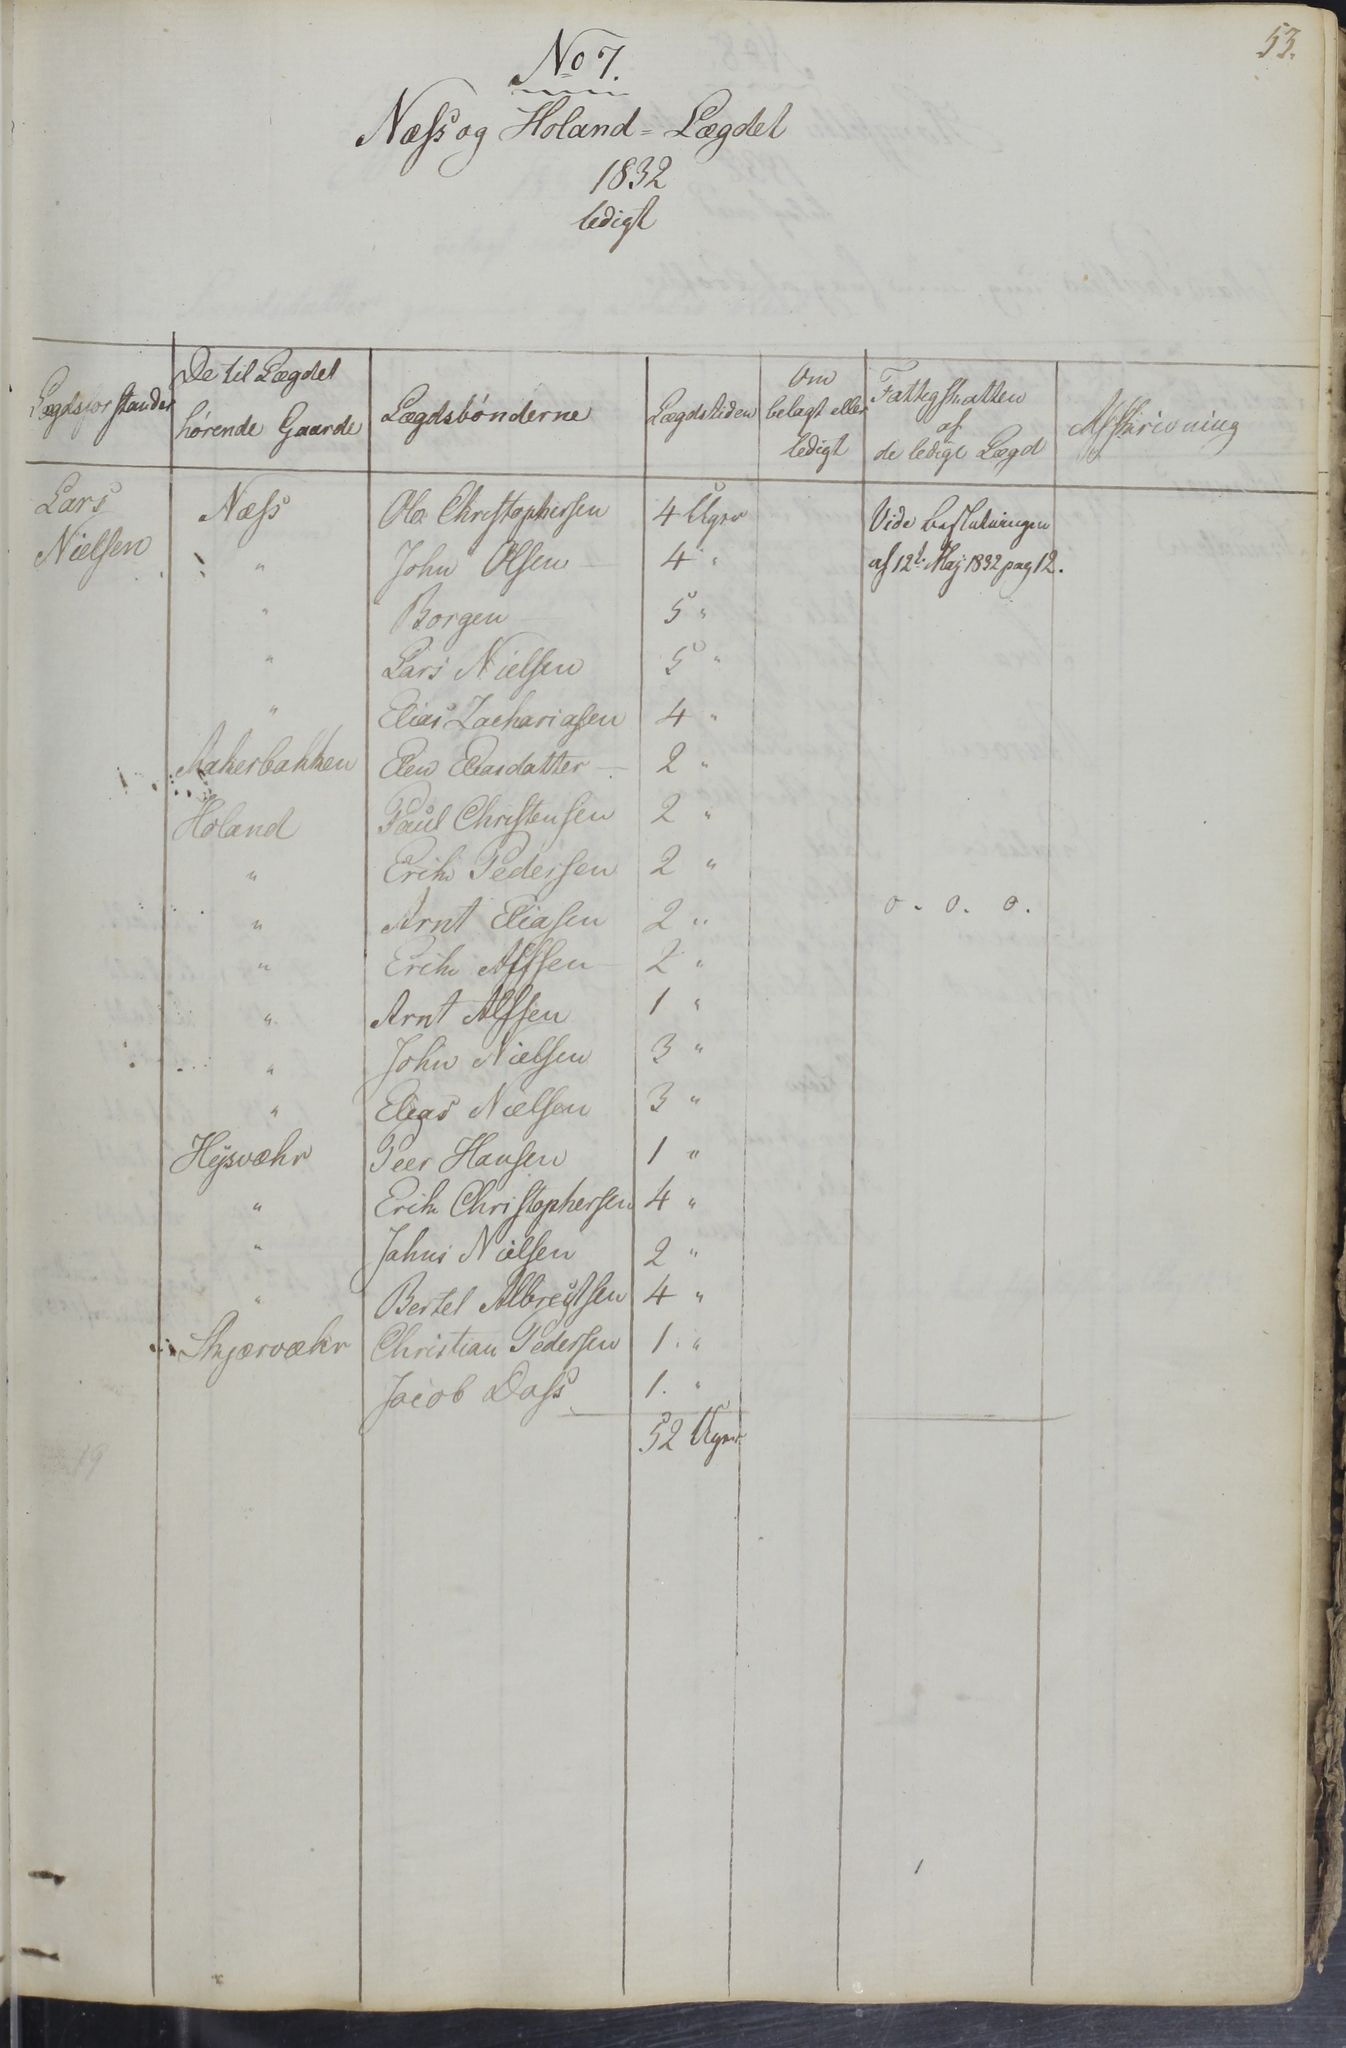 53.
No 7.
Næss og Holand = Lægdet
1832
ledigt
Lægdsforstander | De til Lægdet hørende Gaarde | Lægdsbønderne | Lægdstiden | Om belagt eller ledigt | Fattigskatten af de ledige Lægd | Afskrivning
Lars | Næss | Ole Christophersen | 4 Uger | Vide Beslutningen
Nielsen | " | John Olsen | 4 " | af 12te Maj 1832 pag 12.
" | Borgen | 5 "
" | Lars Nielsen | 5 "
" | Elias Zachariasen | 4 "
Makerbakken | Elen Eliasdatter | 2 "
Holand | Paul Christensen | 2 "
" | Erik Pedersen | 2 "
" | Arnt Eliasen | 2 " | o. o. o.
" | Erik Alfsen | 2 "
" | Arnt Alfsen | 1 "
" | John Nielsen | 3 "
" | Elias Nielsen | 3 "
Hysvæhr | Peer Hansen | 1 "
" | Erik Christophersen | 4 "
" | Jahns Nielsen | 2 "
" | Bertel Albregtsen | 4 "
Skjærvæhr | Christian Pedersen | 1. "
Jacob Dass | 1. "
52 Uger
19